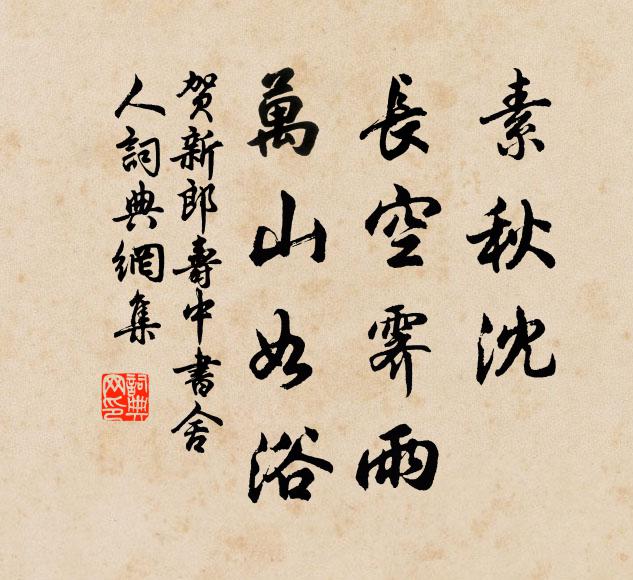 素秋沈
長空霽雨
萬山如浴
賀新郎壽中書舍
人詞典網集
詞典
网印